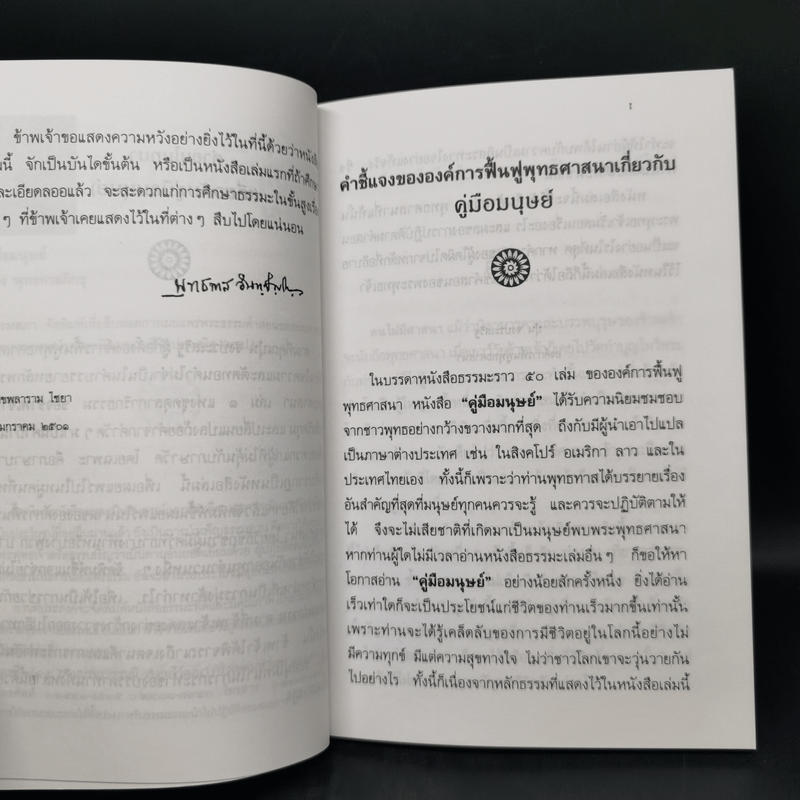 ข้าพเจ้าขอแสดงความหวังอย่างยิ่งไว้ในที่นี้ด้วยว่าหนังสือ
มนี้ จักเป็นบันไดขั้นต้น หรือเป็นหนังสือเล่มแรกที่ถ้าศึกษา
ละเอียดลออแล้ว จะสะดวกแก่การศึกษาธรรมะในขั้นสูงเรื่อง
ๆ ที่ข้าพเจ้าเคยแสดงไว้ในที่ต่าง ๆ สืบไปโดยแน่นอน
พุทธทาส อินฺทปญฺโญ
ขพลาราม ไชยา
มกราคม ๒๕๐๑
๑
คำชี้แจงขององค์การฟื้นฟูพุทธศาสนาเกี่ยวกับ
คู่มือมนุษย์
ในบรรดาหนังสือธรรมะราว ๕๐ เล่ม ขององค์การฟื้นฟู
พุทธศาสนา หนังสือ “คู่มือมนุษย์” ได้รับความนิยมชมชอบ
จากชาวพุทธอย่างกว้างขวางมากที่สุด ถึงกับมีผู้นำเอาไปแปล
เป็นภาษาต่างประเทศ เช่น ในสิงคโปร์ อเมริกา ลาว และใน
ประเทศไทยเอง ทั้งนี้ก็เพราะว่าท่านพุทธทาสได้บรรยายเรื่อง
อันสำคัญที่สุดที่มนุษย์ทุกคนควรจะรู้ และควรจะปฏิบัติตามให้
ได้ จึงจะไม่เสียชาติที่เกิดมาเป็นมนุษย์พบพระพุทธศาสนา
หากท่านผู้ใดไม่มีเวลาอ่านหนังสือธรรมะเล่มอื่น ๆ ก็ขอให้หา
โอกาสอ่าน “คู่มือมนุษย์” อย่างน้อยสักครั้งหนึ่ง ยิ่งได้อ่าน
เร็วเท่าใดก็จะเป็นประโยชน์แก่ชีวิตของท่านเร็วมากขึ้นเท่านั้น
เพราะท่านจะได้รู้เคล็ดลับของการมีชีวิตอยู่ในโลกนี้อย่างไม่
มีความทุกข์ มีแต่ความสุขทางใจ ไม่ว่าชาวโลกเขาจะวุ่นวายกัน
ไปอย่างไร ทั้งนี้ก็เนื่องจากหลักธรรมที่แสดงไว้ในหนังสือเล่มนี้